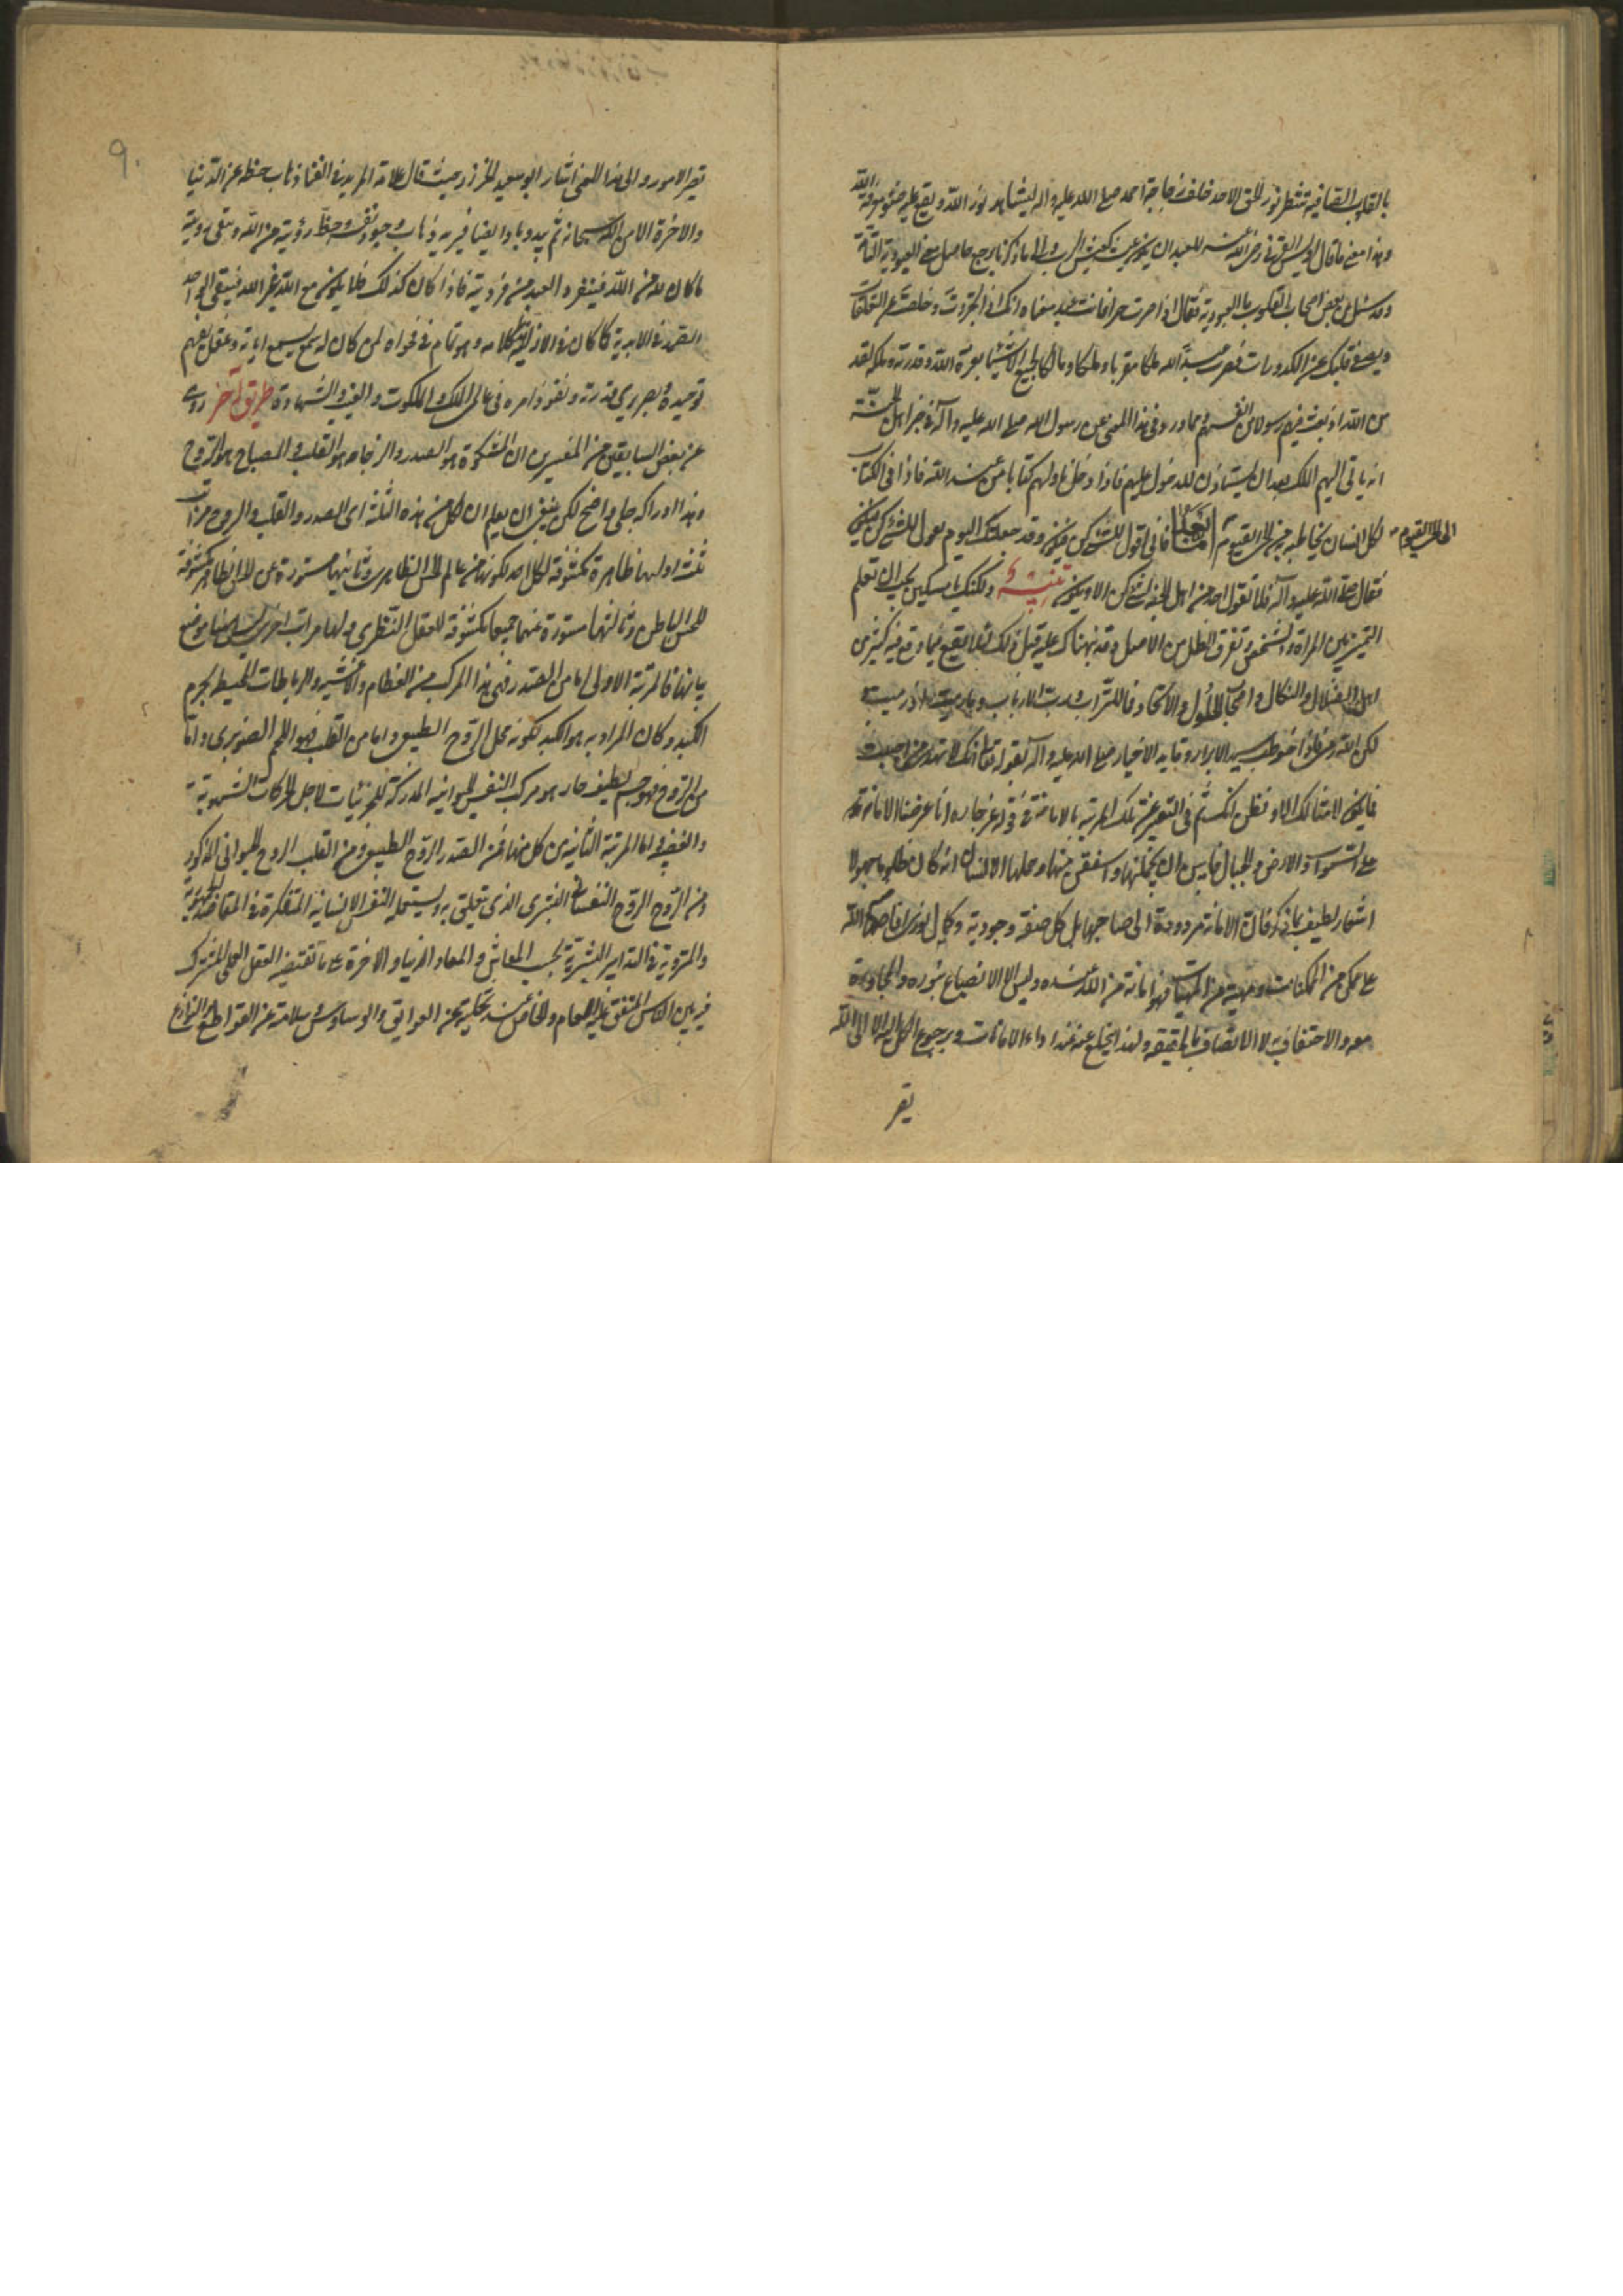 بالقلب الصافية تنتظر نور الحق الاحد خلف زجاجة احمد صلى الله عليه واله ليشاهد نور الله ويقع عليه ضوء معرفة الله
وهذا معنى ما قال اويس القرني رضي الله عنه للعبد ان يكون عيشه كعيش الرب والى ما ذكرنا يرجع حاصل معنى العبودية التامة
وقد سئل من بعض اصحاب القلوب ما العبودية فقال اذا صرت حرا فانت عبد معناه انك اذا تجردت وخلصت عن التعلقات
ويصفى قلبك عن الكدورات فصرت عبد الله ملكا مقربا وملكا ومالكا لجميع الاشياء بعزة الله وقدرته وملكه لقد
من الله اذ بعث فيهم رسولا من انفسهم ومما ورد في هذا المعنى عن رسول الله صلى الله عليه وآله في خبر اهل الجنة
انه ياتي اليهم الملك بعد ان يستاذن للدخول عليهم فاذا دخل ناولهم كتابا من عند الله فاذا في الكتاب
لكل انسان يخاطبه من الحي القيوم الى الحي القيوم اما بعد فاني اقول للشيء كن فيكون وقد جعلتك اليوم تقول للشيء كن فيكون
فقال صلى الله عليه وآله فلا تقول احد من اهل الجنة لشيء كن الا ويكون تنبيه ولكنك يا مسكين يجب ان تعلم
التميز بين المرآة والشخص وتفرق الظل من الاصل وقد نبهناك عليه قبل ذلك لئلا تقع فيما وقع فيه كثير من
اهل الضلال والنكال واصحاب الحلول والاتحاد فما للتراب ورب الارباب وما رميت اذ رميت
لكن الله رمى فاذا خوطب سيد الابرار وقايد الاخيار صلى الله عليه وآله بقوله تعالى انك لا تهدي من احببت
فما يكون لامثالك الا وتظن لنكسه ثم في التعبير عن تلك المرتبة بالامانة في قوله عز جاره انا عرضنا الامانة
على السموات والارض والجبال فابين ان يحملنها واشفقن منها وحملها الانسان انه كان ظلوما جهولا
اشعار لطيف بما ذكر فان الامانة مردودة الى صاحبها بل كل صفة وجودية وكمال نوري افاضه الله
على ممكن من الممكنات ومهية من المهيات فهو امانة من الله عنده وليس له الا الانصباغ بنوره والمجاورة
معه والاحتفاف به لا الاتصاف بالحقيقة ولهذا يخلع عنه عند اداء الامانات ورجوع الكل اليه الا الى الله
تصير
تصير الامور والى هذا المعنى اشار ابو سعيد الخراز حيث قال علامة المريد في الفنا ذهاب حظه عن الدنيا
والاخرة الا من الله سبحانه ثم يبدو باد ايضا فيريه ذهاب وجود نفسه وحظ رؤيته من الله وتبقى رؤية
ما كان لله من الله فيتفرد العبد من فرديته فاذا كان كذلك فلا يكون مع الله غير الله فيبقى الواحد
الصمد في الابدية كما كان في الازلية كلامه وهو تمام في فحواه لمن كان له سمع يسمع اياته وعقل يفهم
توحيده وبصر يرى قدرته ونفوذ امره في عالمي الملك والملكوت والغيب والشهادة طريق آخر روى
عن بعض السابقين من المفسرين ان المشكوة هو الصدر والزجاجة هو القلب والمصباح هو الروح
وهذا ادراكه جلي واضح لكن ينبغي ان يعلم ان لكل من هذه الثلثة اى الصدر والقلب والروح مراتب
ثلثة اوليها ظاهرة مكشوفة لكل احد لكونها من عالم الحس الظاهر وثانيتها مستورة عن الحس الظاهر مكشوفة
للحس الباطن وثالثتها مستورة عنهما جميعا مكشوفة للعقل النظري ولها مراتب اخرى ليس هنا موضع
بيانها فالمرتبة الاولى اما من الصدر فهى هذا المركب من العظام والاغشية والرباطات المحيط بجرم
الكبد وكان المراد به هو الكبد لكونه محل الروح الطبيعي واما من القلب فهو اللحم الصنوبري واما
من الروح فهو جسم لطيف حار هو مركب النفس الحيوانية المدركة للجزئيات لاجل الحركات الشهوية
والغضبية اما المرتبة الثانية من كل منها فمن الصدر الروح الطبيعي ومن القلب الروح الحيواني المذكور
ومن الروح الروح النفساني البشرى الذى يتعلق به ويستعمله النفس الانسانية المتفكرة في المقاصد الحيوية
والمتروية في التدابير البشرية بحسب المعاش والمعاد الدنيا والاخرة على ما تقتضيه العقل العملي المشترك
فيه بين الناس المتفق عليه العام والخاص عند تخليته عن العوايق والوساوس وسلامته عن القواطع والنوازع